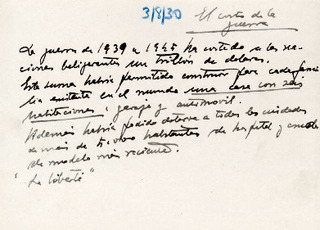 3/8/30
El costo de la
guerra
La guerra de 1939 a 1945 ha costado a las na-
ciones beligerantes un trillón de dolares.
Esta suma habria permitido construir para cada fami-
lia existente en el mundo una casa con seis
habitaciones, garaje y automovil.
Además habria podido dotarse a todas las ciudades
de más de habitantes de hospital y escuela
de modelo más reciente.
"La Liberté"